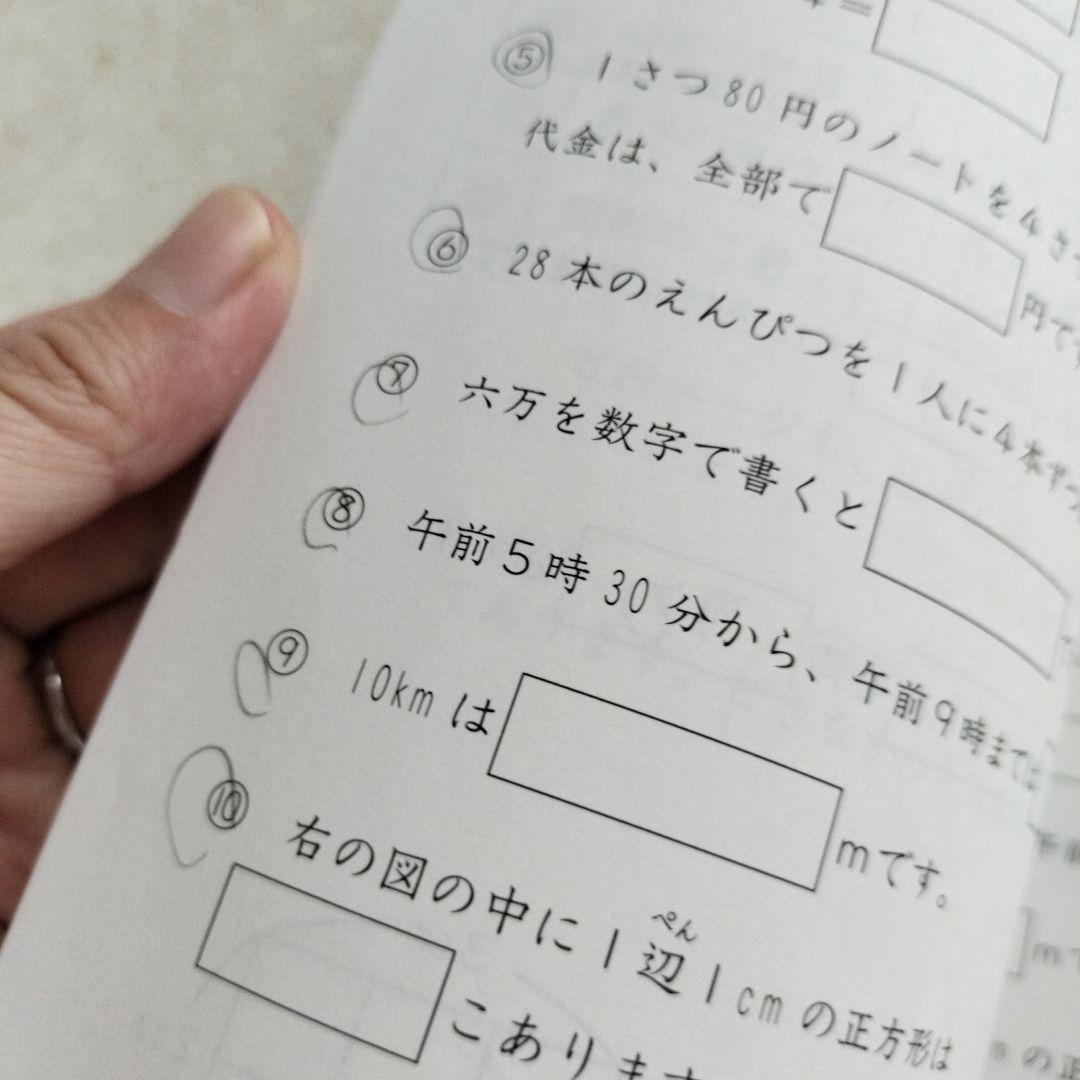 =
⑤ 1さつ80円のノートを4さ
代金は、全部で
円です
⑥ 28本のえんぴつを1人に4本ずつ
⑦ 六万を数字で書くと
⑧ 午前5時30分から、午前9時までは
⑨ 10kmは mです。
⑩ 右の図の中に1辺1cmの正方形は
ぺん
こあります